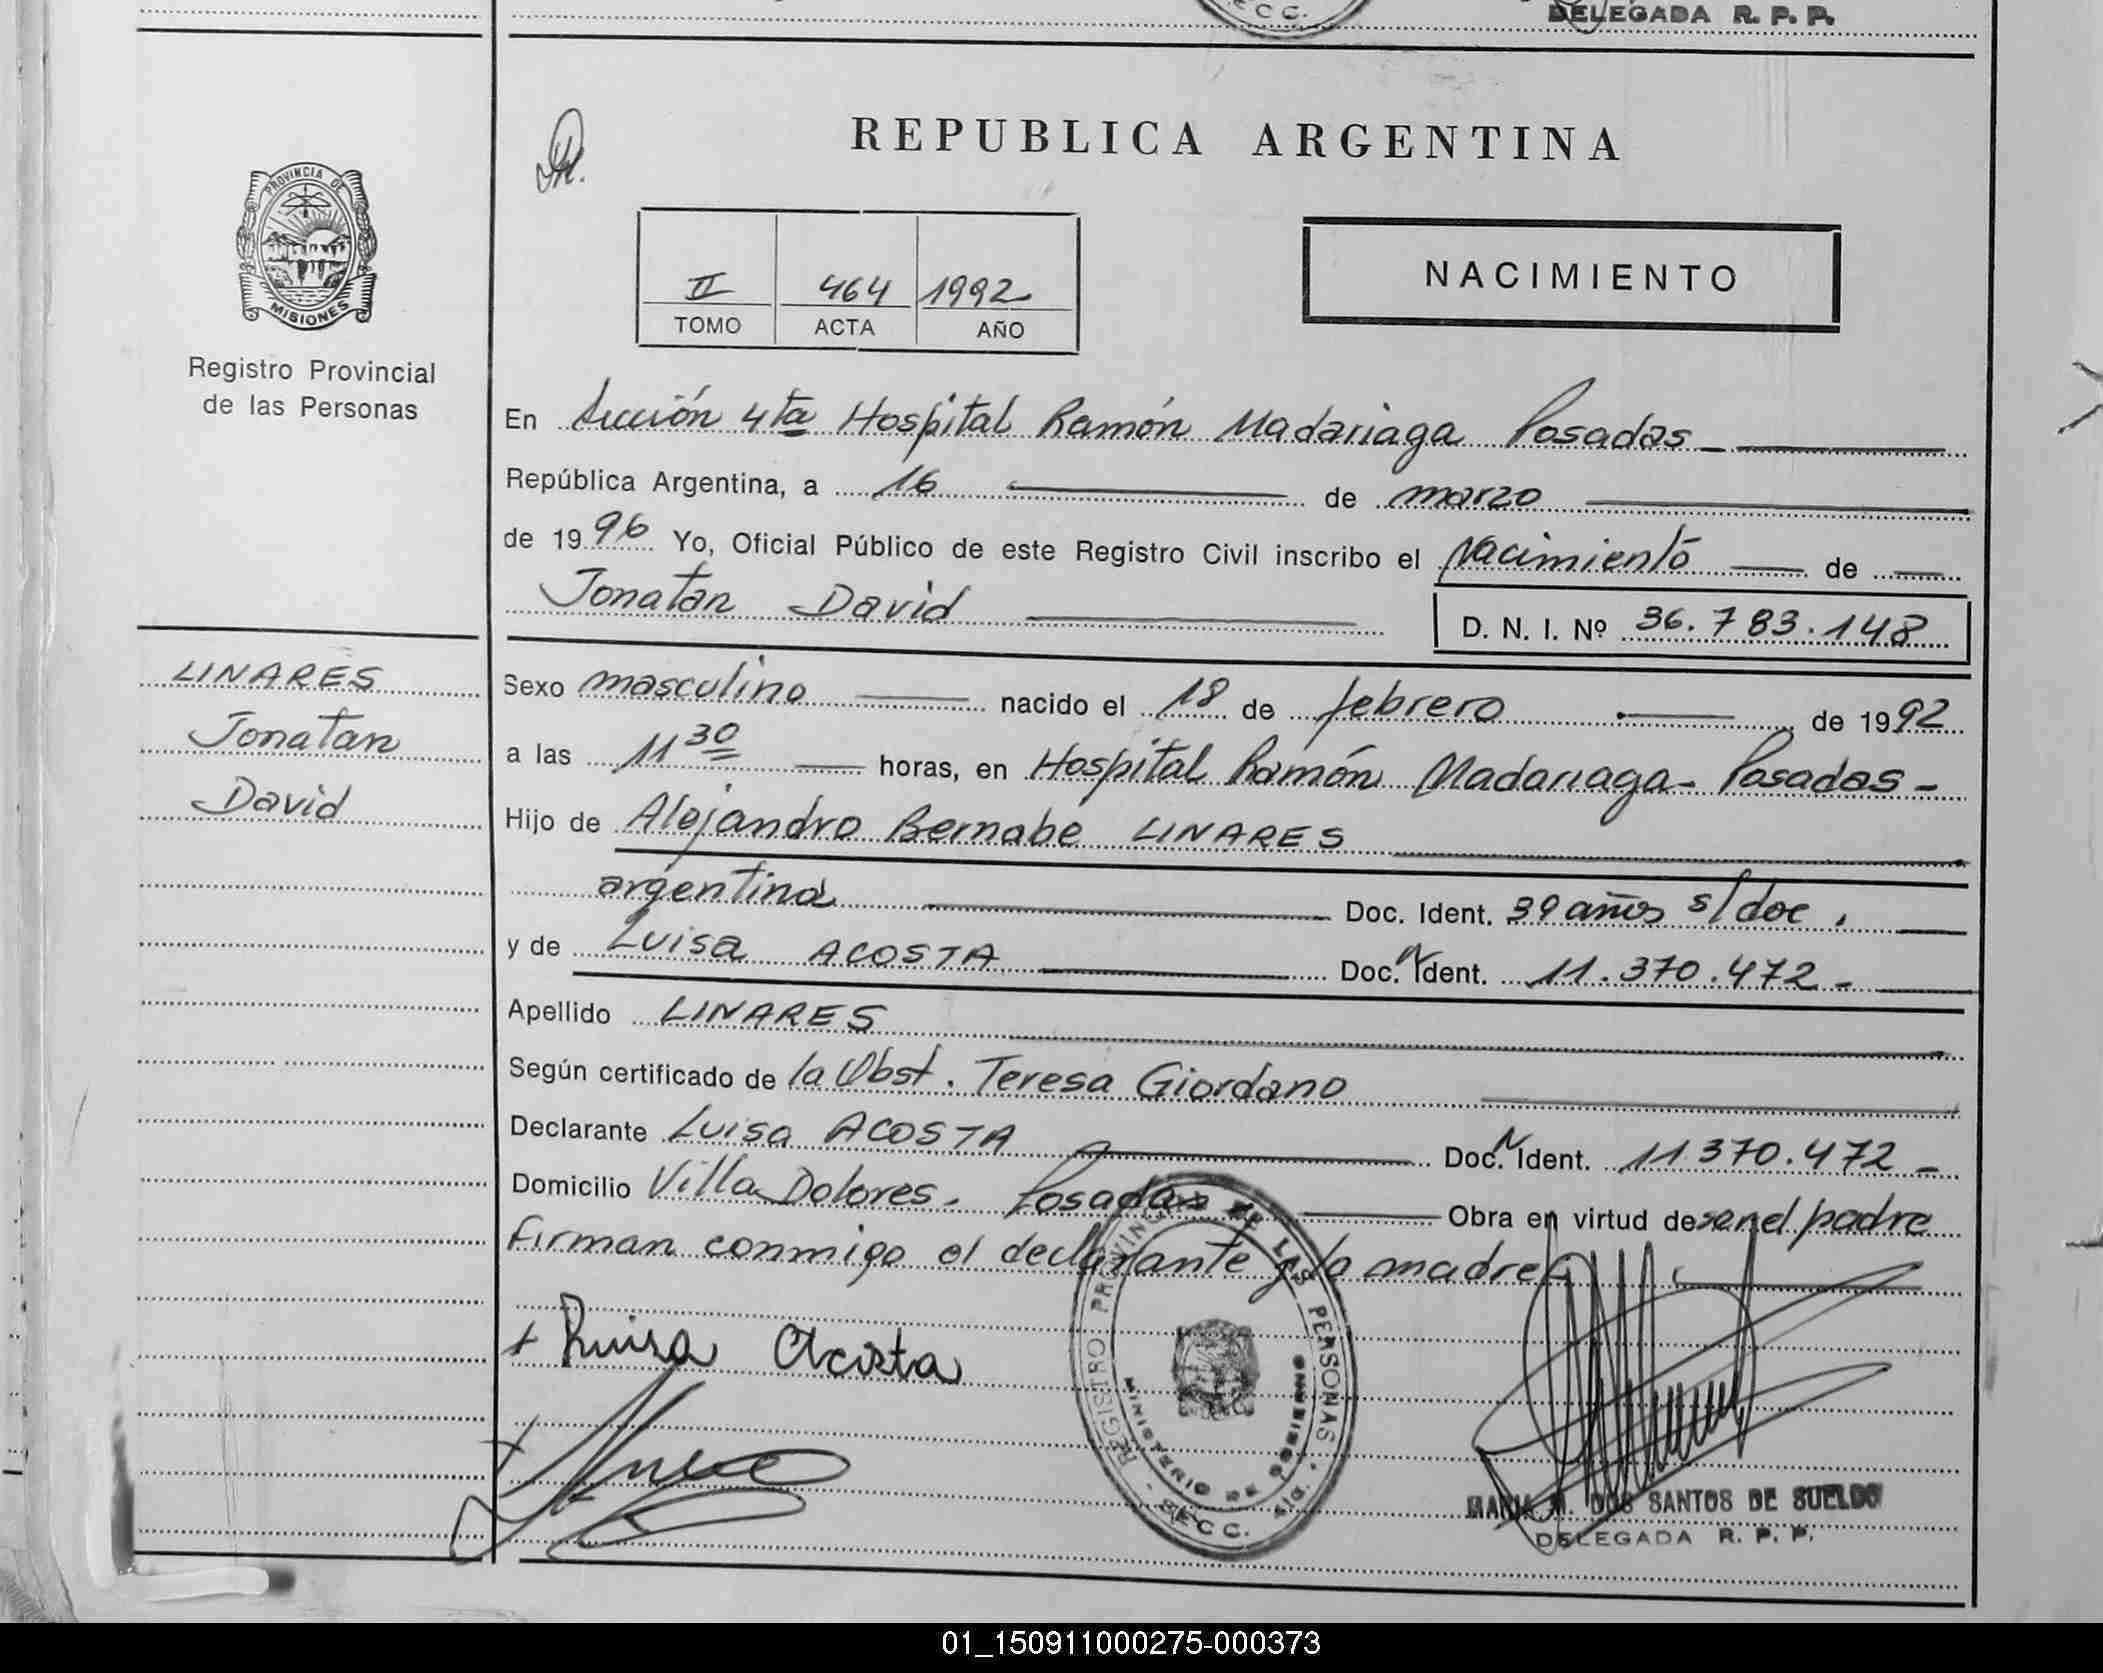 SECC.
DELEGADA R. P. P.
REPUBLICA ARGENTINA
PROVINCIA DE
MISIONES
Registro Provincial
de las Personas
II 464 1992
TOMO ACTA AÑO
NACIMIENTO
En Sección 4ta Hospital Ramón Madariaga Posadas
República Argentina, a 16 de marzo
de 1996 Yo, Oficial Público de este Registro Civil inscribo el Nacimiento de
Jonatan David
D. N. I. Nº 36.783.148
LINARES
Jonatan
David
Sexo masculino nacido el 18 de febrero de 1992
a las 11 30 horas, en Hospital Ramón Madariaga - Posadas -
Hijo de Alejandro Bernabe LINARES
argentina Doc. Ident. 39 años s/doc.
y de Luisa ACOSTA Doc. Ident. 11.370.472 -
Apellido LINARES
Según certificado de la Obst. Teresa Giordano
Declarante Luisa ACOSTA Doc. Ident. 11.370.472 -
Domicilio Villa Dolores. Posadas Obra en virtud de ser el padre
Firman conmigo el declarante y la madre
+ Luisa Acosta
REGISTRO PROVINCIAL DE LAS PERSONAS
MINISTERIO DE GOBIERNO
SECC. 4ta.
MARIA M. DOS SANTOS DE SUELDO
DELEGADA R. P. P.
01_150911000275-000373